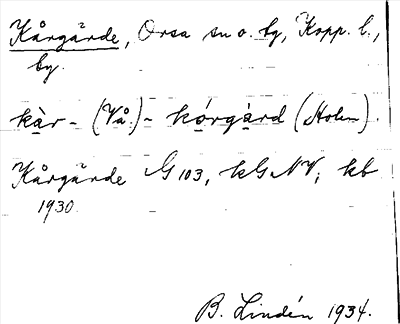 Kårgärde, Orsa sn o. by, Kopp. l.,
by.
kàr- (Vå.)- kórgàrd (Holm).
Kårgärde G 103, kGNV, kb
1930.
B. Lindén 1934.